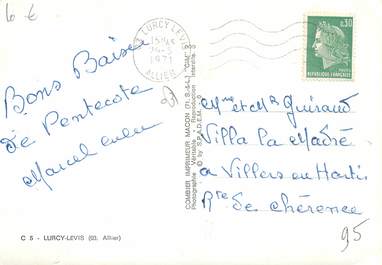 10 €
03 LURCY-LEVIS
1971
ALLIER
0,30
RÉPUBLIQUE FRANÇAISE
Bons Baisers
de Pentecote
Marcel
COMBIER IMPRIMEUR MACON (71. S.-&-L.) "CIM"
Photographie Véritable - Reproduction Interdite
© by S.P.A.D.E.M.
Mme et Mr Guiraud
Villa la Madré
à Villers en
Rte de chérence
95
C 5 - LURCY-LEVIS (03. Allier)